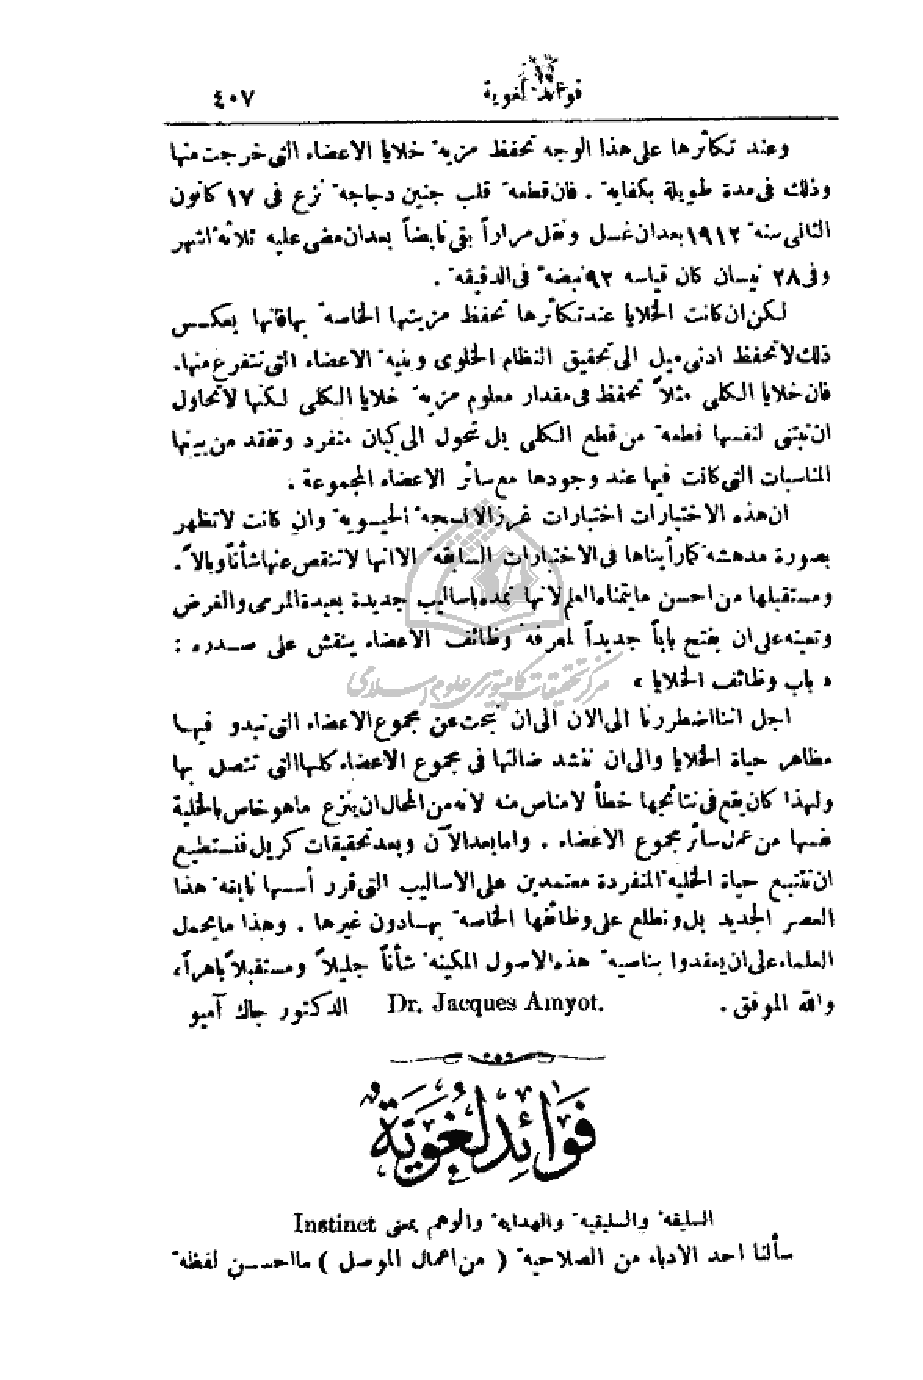 فوائد لغوية ٤٠٧
وعند تكاثرها على هذا الوجه تحفظ مزية خلايا الاعضاء التي خرجت منها
وذلك في مدة طويلة بكفاية . فان قطعة قلب جنين دجاجة نزع في ١٧ كانون
الثاني سنة ١٩١٢ بعد ان غسل ونقل مراراً بقي نابضاً بعد ان مضى عليه ثلاثة اشهر
وفي ٢٨ نيسان كان قياسه ٩٢ نبضة في الدقيقة .
لكن ان كانت الخلايا عند تكاثرها تحفظ مزيتها الخاصة بها فانها بعكس
ذلك لا تحفظ ادنى ميل الى تحقيق النظام الخلوي وبنية الاعضاء التي تتفرع منها.
فان خلايا الكلى مثلاً تحفظ في مقدار معلوم مزية خلايا الكلى لكنها لا تحاول
ان تبتني لنفسها قطعة من قطع الكلى بل تتحول الى كيان منفرد وتفقد من بينها
المناسبات التي كانت فيها عند وجودها مع سائر الاعضاء المجموعة .
ان هذه الاختبارات اختبارات غرز الانسجة الحيوية وان كانت لا تظهر
بصورة مدهشة كما رأيناها في الاختبارات السابقة الا انها لا تنقص عنها شأناً وبالاً.
ومستقبلها من احسن ما يتمناه العلم لانها تمده باساليب جديدة بعيدة المرمى والغرض
وتعينه على ان يفتح باباً جديداً لمعرفة وظائف الاعضاء ينقش على صدره :
« باب وظائف الخلايا »
اجل اننا اضطررنا الى الان الى ان نبحث عن مجموع الاعضاء التي تبدو فيها
مظاهر حياة الخلايا والى ان ننشد ضالتها في مجموع الاعضاء كلها التي تتصل بها
ولهذا كان يقع في نتائجها خطأ لا مناص منه لانه من المحال ان ينزع ما هو خاص بالخلية
نفسها من عمل سائر مجموع الاعضاء . واما بعد الآن وبعد تحقيقات كريل فنستطيع
ان نتتبع حياة الخلية المنفردة معتمدين على الاساليب التي قرر أسسها نابغة هذا
العصر الجديد بل ونطلع على وظائفها الخاصة بها دون غيرها . وهذا ما يحمل
العلماء على ان يعقدوا بناصية هذه الاصول المكينة شأناً جليلاً ومستقبلاً باهراً،
والله الموفق . Dr. Jacques Amyot. الدكتور جاك آميو
فَوَائِد لُغَوِيَّة
السليقة والسليقية والهداية والوهم بمعنى Instinct
سألنا احد الادباء من الصلاحية ( من اعمال الموصل ) ما احسن لفظة
مركز تحقيقات كامپيوترى علوم اسلامى